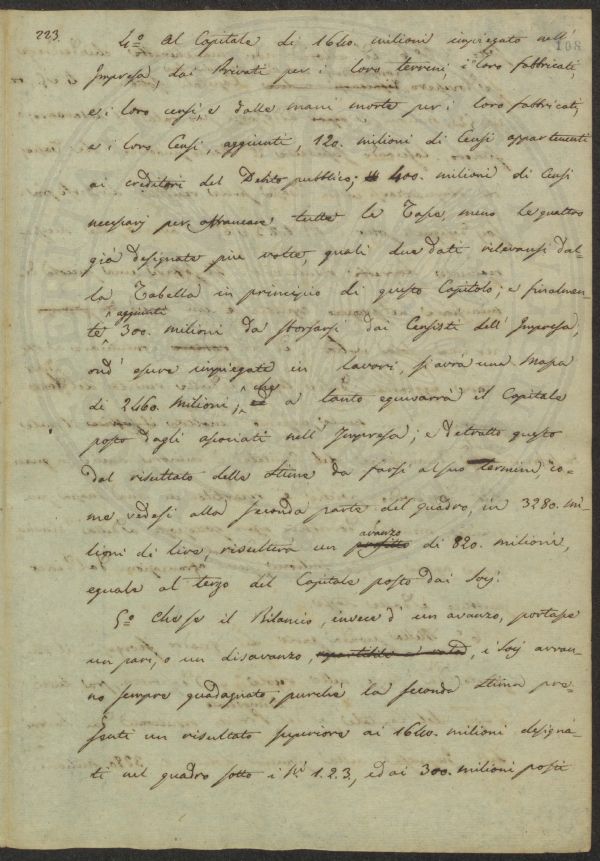 223.
108
4.° Al Capitale di 1640. milioni impiegato nell'
Impresa, dai Privati per i loro terreni, i loro fabbricati,
e i loro censi, e dalle mani morte per i loro fabbricati,
e i loro Censi, aggiunti, 120. milioni di Censi appartenenti
ai creditori del Debito pubblico; 400. milioni di Censi
necessarj per affrancare tutte le Tasse, meno le quattro
già designate più volte quali due dati rilevansi dal-
la Tabella in principio di questo Capitolo; e finalmen-
te aggiunti 300. milioni da sborsarsi dai Censisti dell'Impresa,
ond'essere impiegati in lavori, si avrà una massa
di 2460. milioni, che a tanto equivarrà il Capitale
posto dagli associati nell'Impresa; e detratto questo
dal risultato della stima da farsi al suo termine, co-
me vedesi alla seconda parte del quadro, in 3280. mi-
lioni di lire, risulterà un profitto avanzo di 820. milioni,
eguale al terzo del Capitale posto dai Socj.
5.° Che se il Bilancio, invece d'un avanzo, portasse
un pari, o un disavanzo, i Socj avran-
no sempre guadagnato; purché la seconda stima pre-
senti un risultato superiore ai 1640. milioni designa-
ti nel quadro sotto i N.i 1. 2. 3, ed ai 300. milioni posti